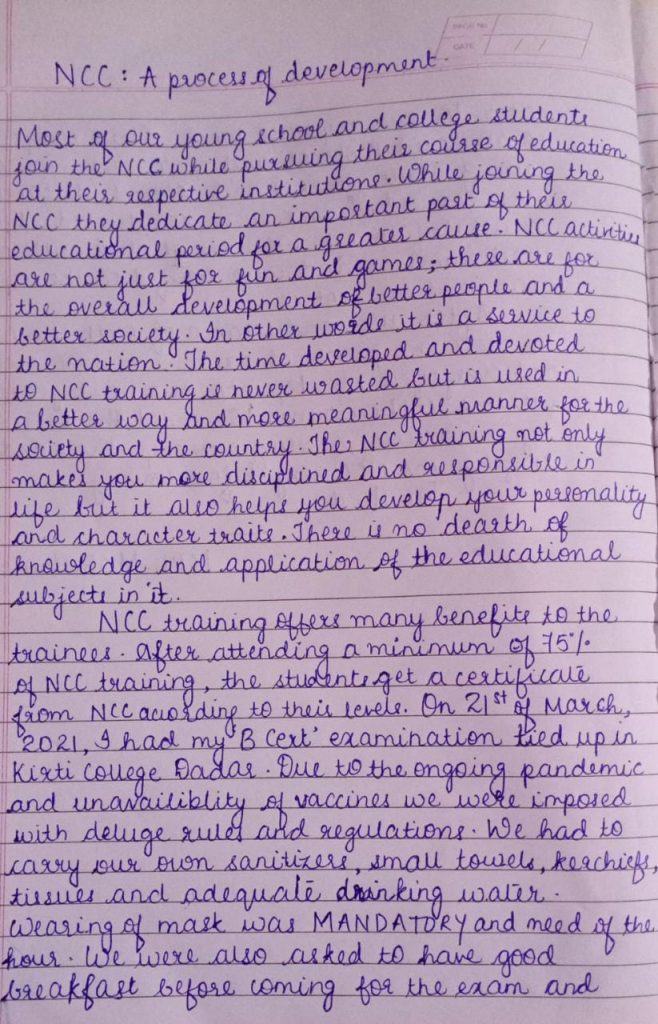 PAGE NO.
DATE
NCC : A process of development.
Most of our young school and college students
join the NCC while pursuing their course of education
at their respective institutions. While joining the
NCC they dedicate an important part of their
educational period for a greater cause. NCC activities
are not just for fun and games; these are for
the overall development of better people and a
better society. In other words it is a service to
the nation. The time developed and devoted
to NCC training is never wasted but is used in
a better way and more meaningful manner for the
society and the country. The NCC training not only
makes you more disciplined and responsible in
life but it also helps you develop your personality
and character traits. There is no dearth of
knowledge and application of the educational
subjects in it.
NCC training offers many benefits to the
trainees. After attending a minimum of 75%
of NCC training, the students get a certificate
from NCC according to their levels. On 21st of March,
2021, I had my 'B Cert' examination tied up in
Kirti College Dadar. Due to the ongoing pandemic
and unavailiblity of vaccines we were imposed
with deluge rules and regulations. We had to
carry our own sanitizers, small towels, kerchiefs,
tissues and adequate drinking water.
Wearing of mask was MANDATORY and need of the
hour. We were also asked to have good
breakfast before coming for the exam and